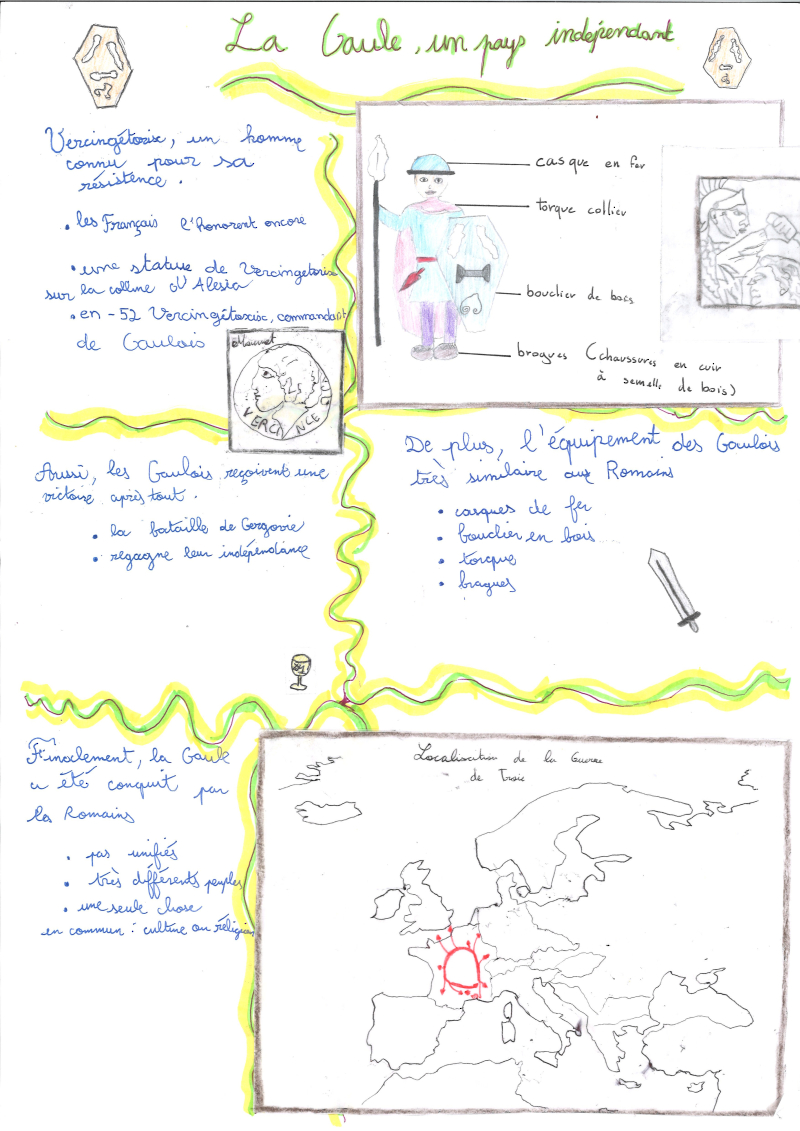 La Gaule, un pays indépendant
Vercingétorix, un homme
connu pour sa
résistence.
• les Français l'honorent encore
• une statue de Vercingetorix
sur la colline d'Alesia
• en -52 Vercingétorix, commandant
de Gaulois
VERCINCE
casque en fer
torque collier
bouclier de bois
bragues (chaussures en cuir
à semelle de bois)
Aussi, les Gaulois reçoivent une
victoire après tout.
• la bataille de Gergovie
• regagne leur indépendance
De plus, l'équipement des Gaulois
très similaire aux Romains
• casques de fer
• bouclier en bois
• torque
• bragues
Finalement, la Gaule
a été conquit par
les Romains
• pas unifiés
• très différents peuples
• une seule chose
en commun : culture ou réligion
Localisation de la Guerre
de Troie